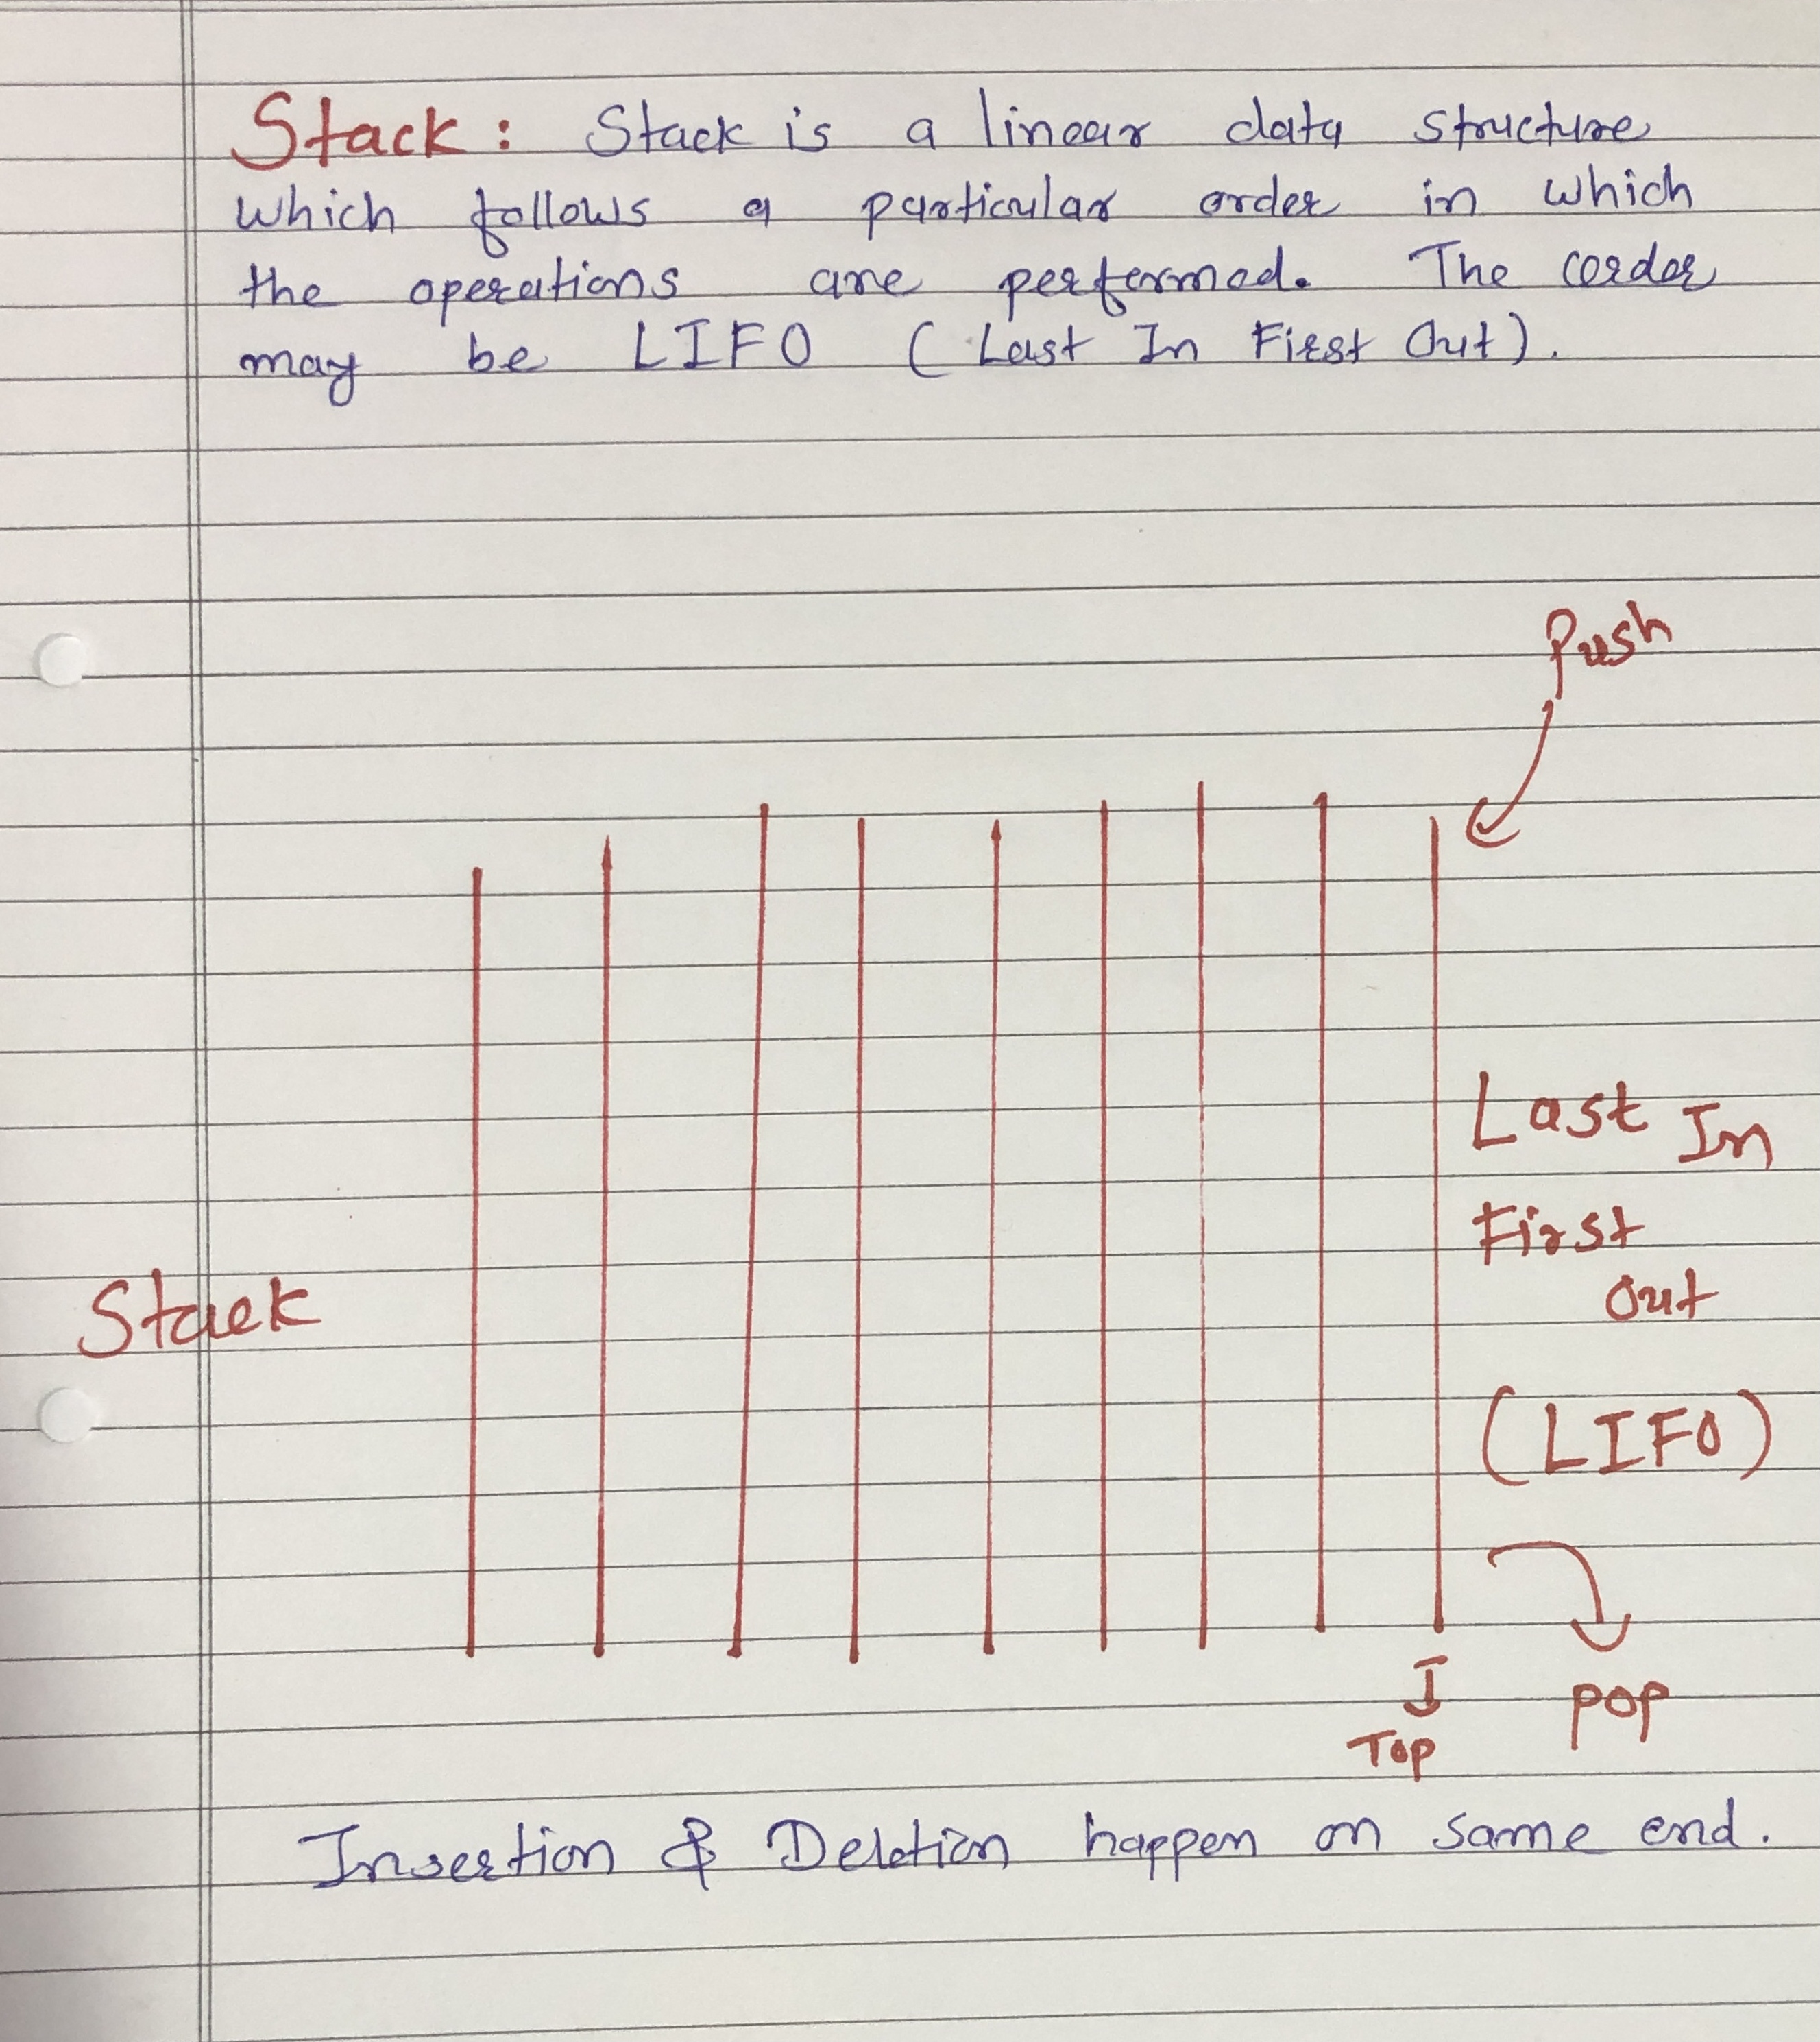 Stack: Stack is a linear data structure
which follows a particular order in which
the operations are performed. The order
may be LIFO (Last In First Out).
Push
Last In
First
Out
Stack
(LIFO)
Top
pop
Insertion & Deletion happen on same end.